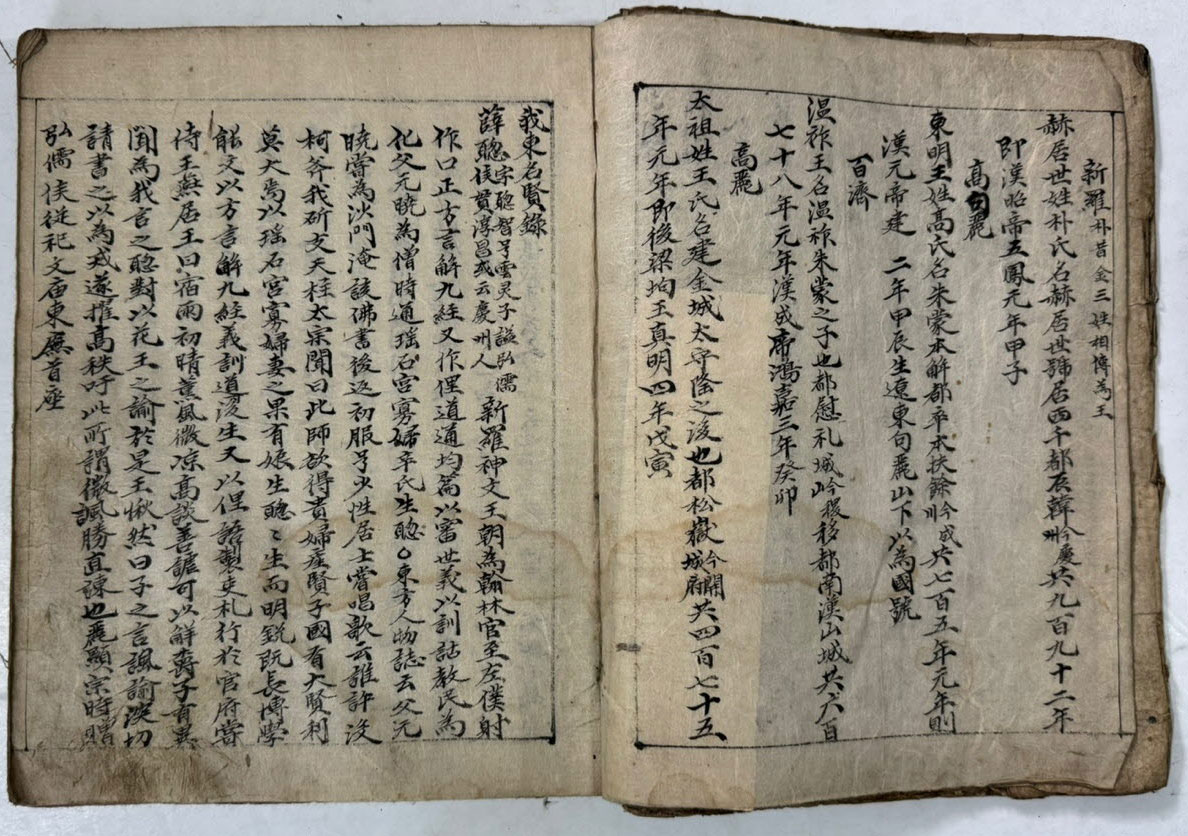 新羅 朴昔金三姓相傳為王
赫居世姓朴氏名赫居世號居西干都辰韓今慶州共九百九十二年
即漢昭帝五鳳元年甲子
高句麗
東明王姓高氏名朱蒙本解都卒本扶餘今成州共七百五年元年則
漢元帝建 二年甲辰生遼東句麗山下以為國號
百濟
温祚王名温祚朱蒙之子也都慰礼城後移都南漢山城共六百
七十八年元年漢成帝鴻嘉三年癸卯
高麗
太祖姓王氏名建金城太守隆之後也都松嶽今開城府共四百七十五
年元年即後梁均王真明四年戊寅
我東名賢錄
薛聰字聰智号雲灵子謚弘儒侯貫淳昌或云慶州人 新羅神文王朝為翰林官至左僕射
作口正方言解九經又作俚道通均篇以富世義以訓詁教民為
化父元曉為僧時通瑶石宮寡婦辛氏生聰○東方人物誌云父元
曉嘗為沙門淹該佛書後返初服号少性居士嘗唱歌云誰許沒
柯斧我斫支天柱太宗聞曰此師欲得貴婦産賢子國有大賢利
莫大焉以瑶石宮寡婦妻之果有娠生聰〻生而明鋭既長博學
能文以方言解九經義訓道後生又以俚語製吏札行於官府嘗
侍王燕居王曰宿雨初晴薰風微凉高談善謔可以解欝子有異
聞為我言之聰對以花王之諭於是王愀然曰子之言諷諭深切
請書之以為戒遂擢高秩吁此所謂微諷勝直諫也麗顯宗時贈
弘儒侯從祀文庙東廡首座